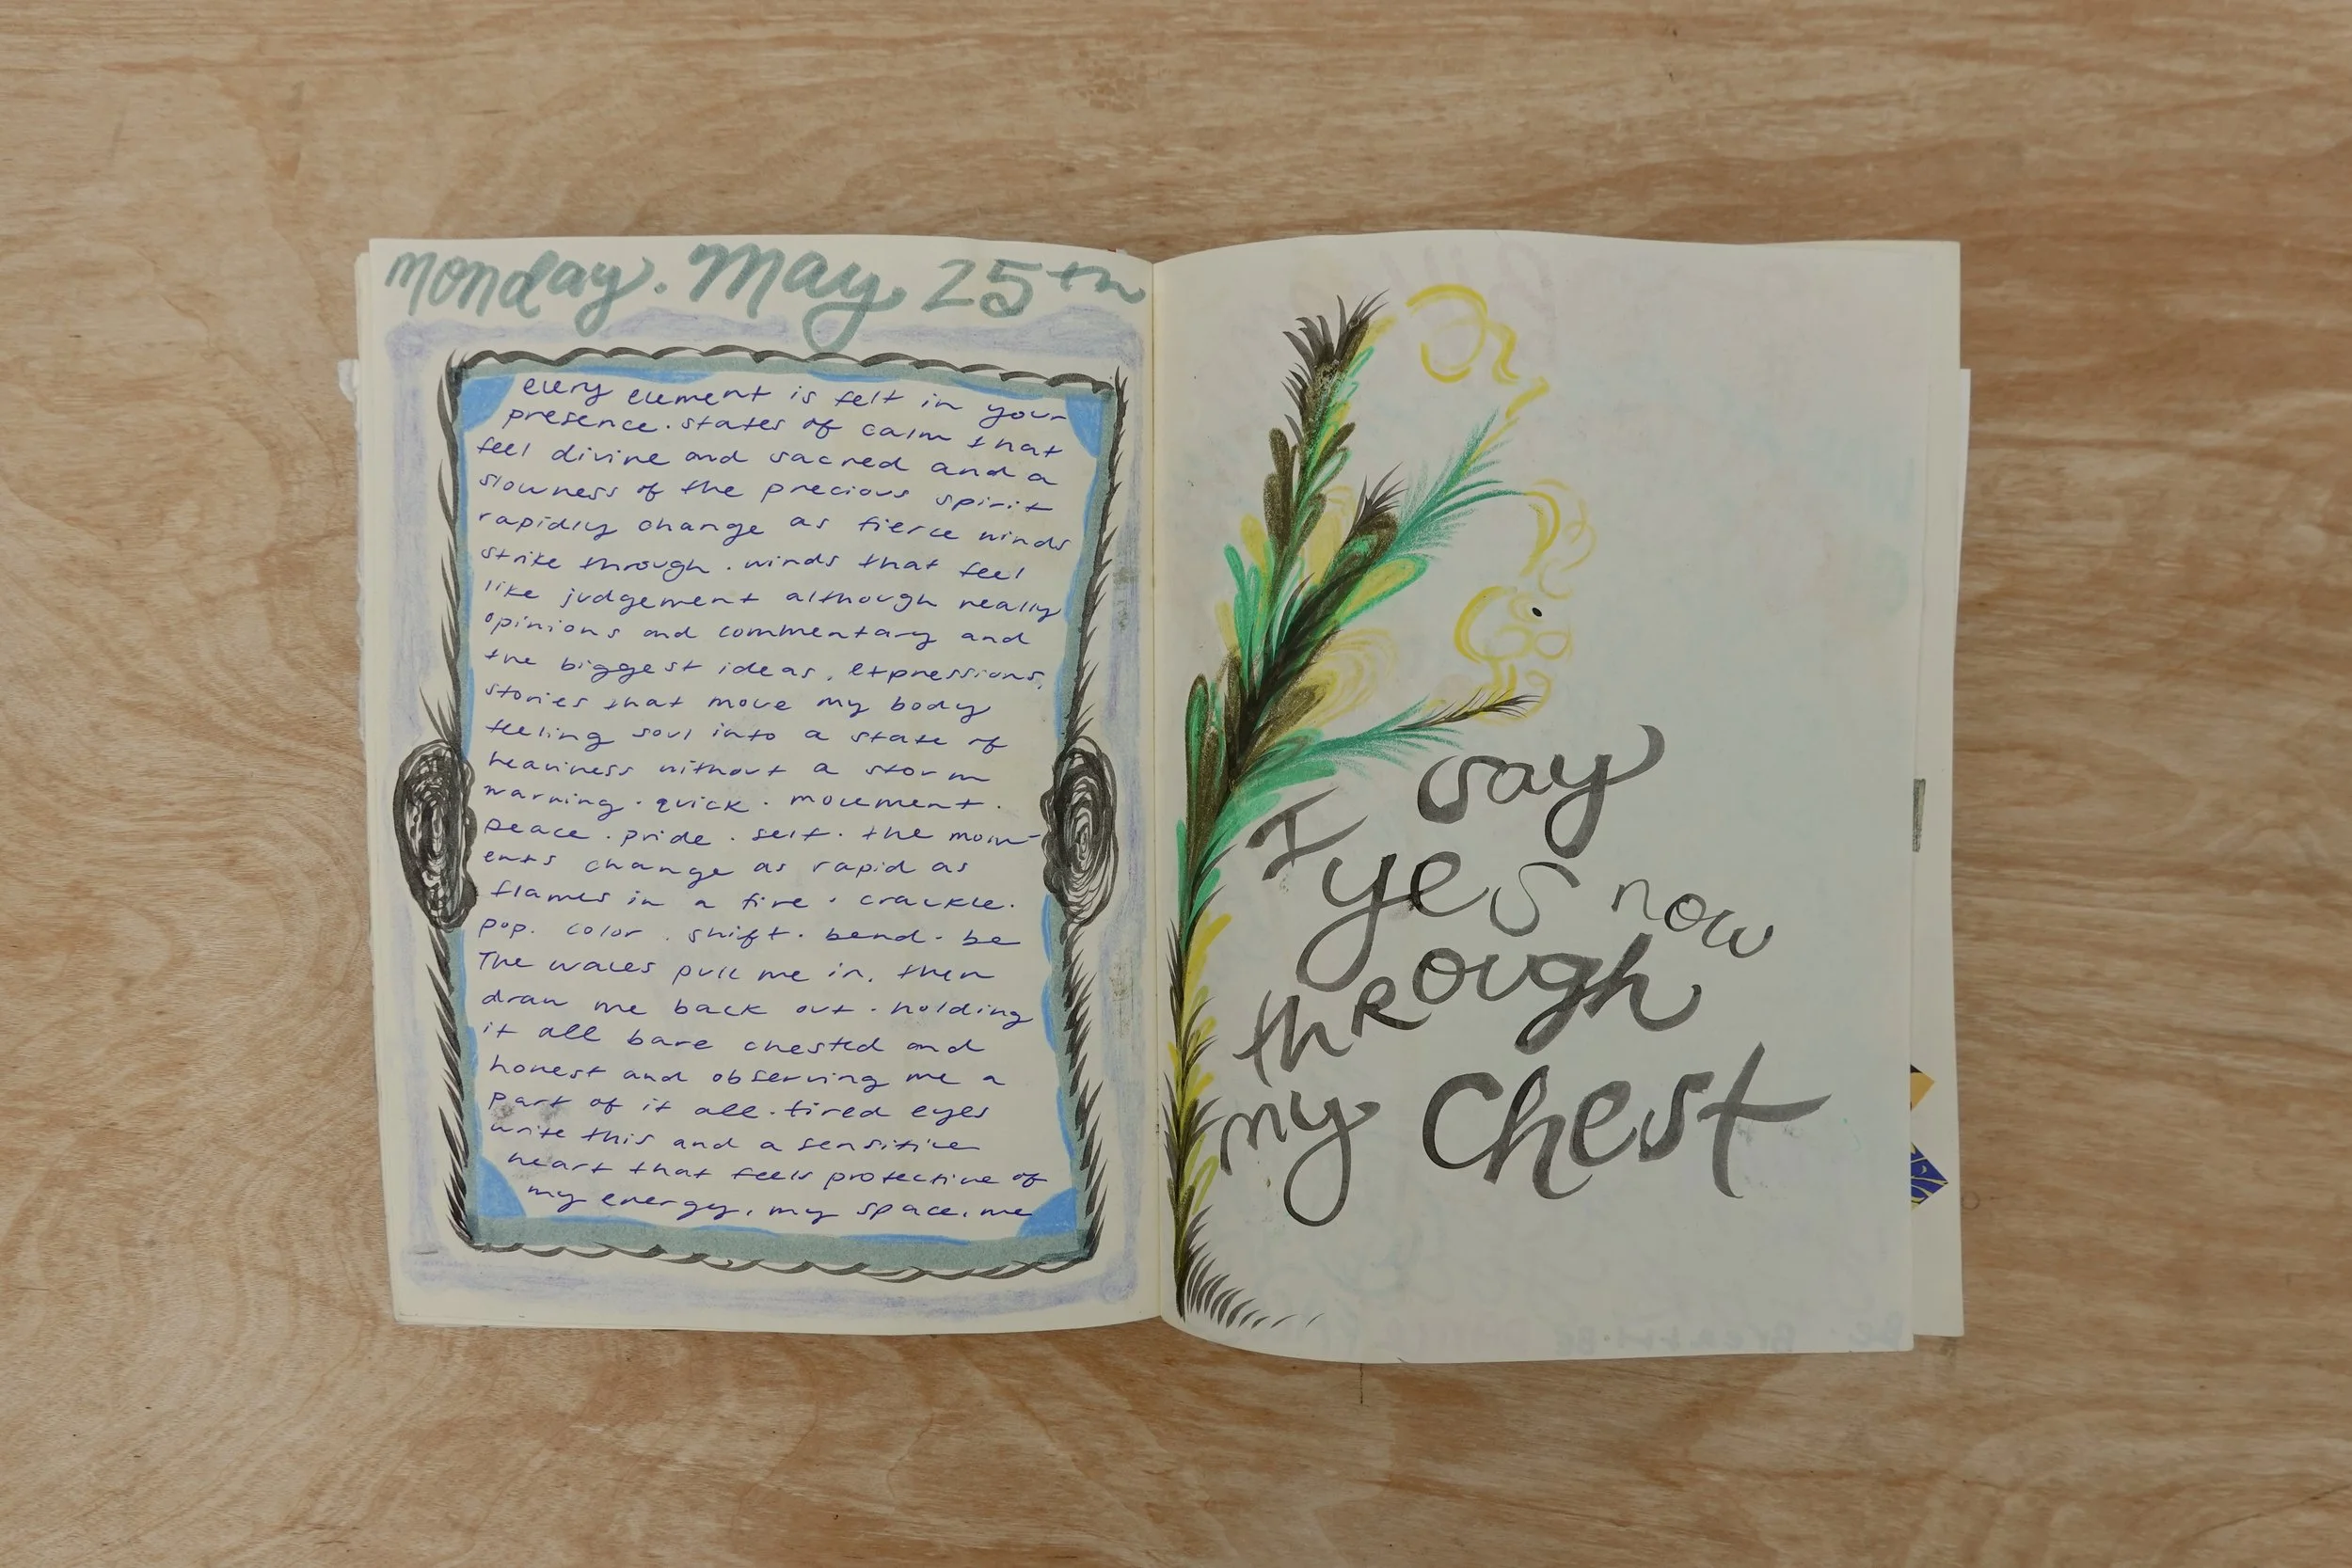 monday. May 25th
every element is felt in your
presence. states of calm that
feel divine and sacred and a
slowness of the precious spirit
rapidly change as fierce winds
strike through. winds that feel
like judgement although really
opinions and commentary and
the biggest ideas, expressions,
stories that move my body
feeling soul into a state of
heaviness without a storm
warning. quick. movement.
peace. pride. self. the mom-
ents change as rapid as
flames in a fire. crackle.
pop. color. shift. bend. be
The waves pull me in, then
draw me back out. holding
it all bare chested and
honest and observing me a
part of it all. tired eyes
write this and a sensitive
heart that feels protective of
my energy, my space, me
I say
yes now
thRough
my chest